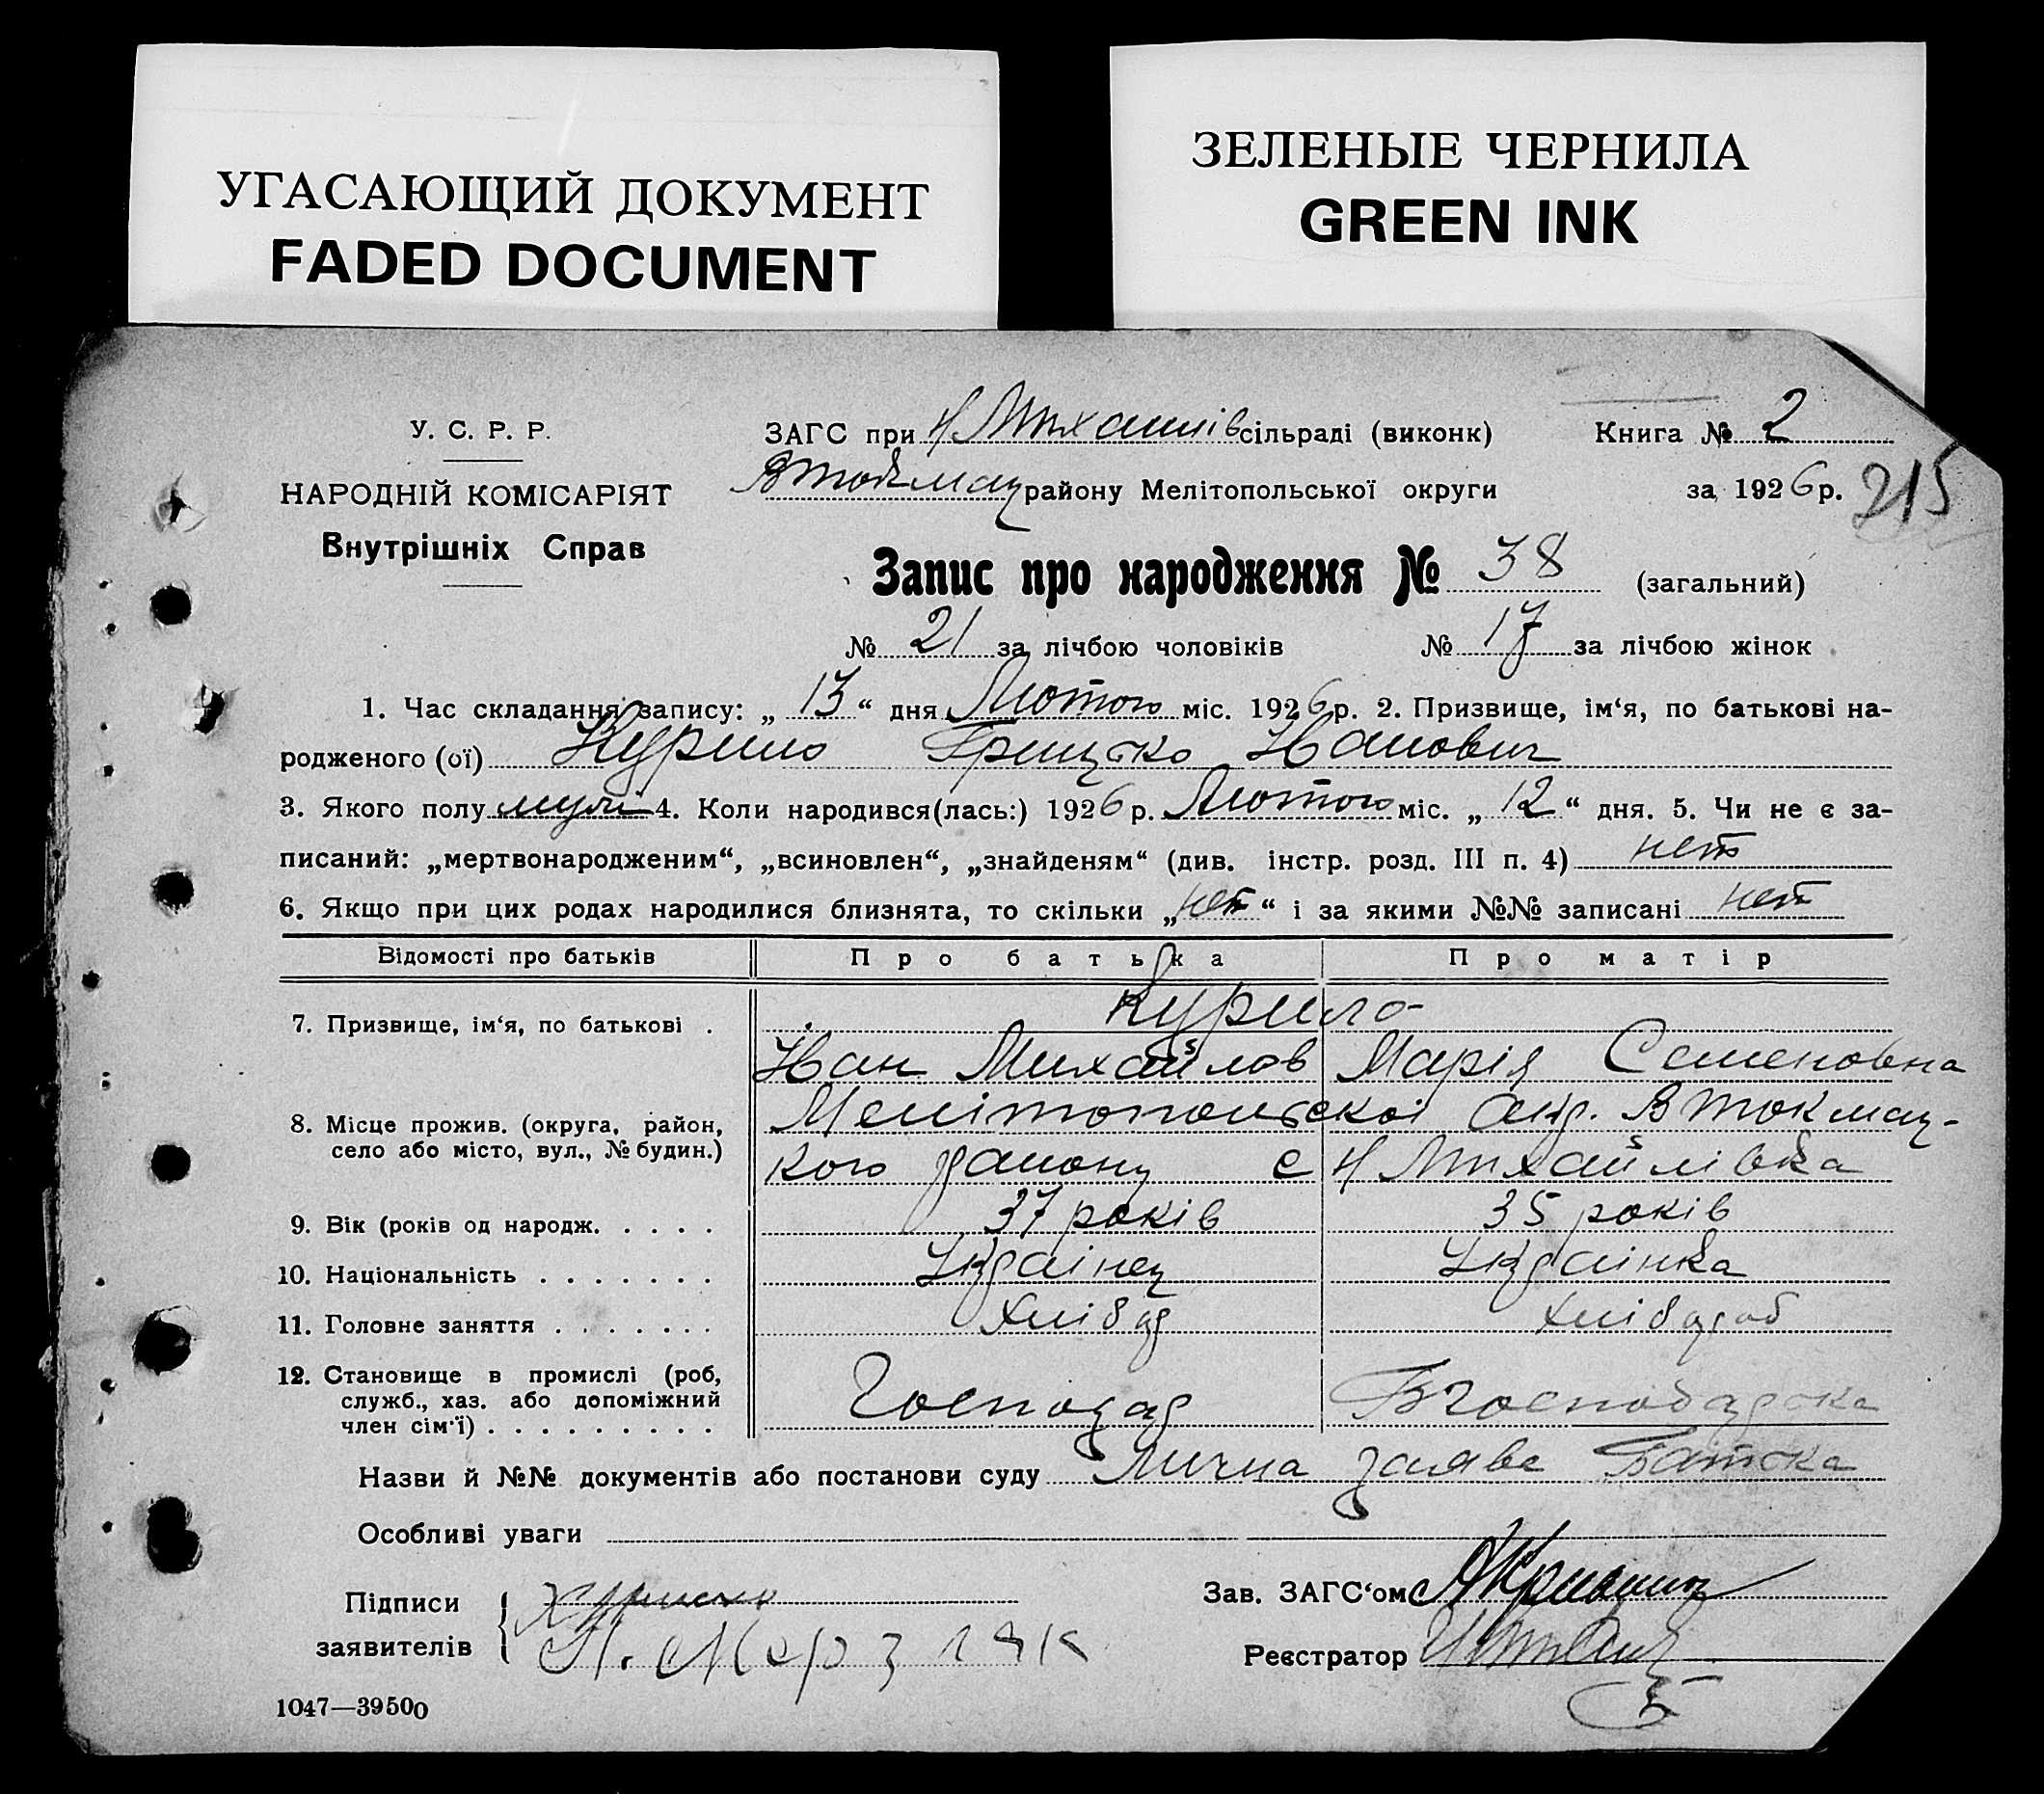 УГАСАЮЩИЙ ДОКУМЕНТ
FADED DOCUMENT
ЗЕЛЕНЫЕ ЧЕРНИЛА
GREEN INK
У. С. Р. Р.
НАРОДНІЙ КОМІСАРІЯТ
Внутрішніх Справ
ЗАГС при Н Михайлів сільраді (виконк)
ВТокмац району Мелітопольської округи
Книга № 2
за 1926 р.
215
Запис про народження № 38 (загальний)
№ 21 за лічбою чоловіків № 17 за лічбою жінок
1. Час складання запису: „ 13 “ дня Лютого міс. 1926 р. 2. Призвище, ім‘я, по батькові на-
родженого (ої) Курило Грицько Иванович
3. Якого полу муж 4. Коли народився(лась:) 1926 р. Лютого міс. „ 12 “ дня. 5. Чи не є за-
писаний: „мертвонародженим“, „всиновлен“, „знайденям“ (див. інстр. розд. III п. 4) нет
6. Якщо при цих родах народилися близнята, то скільки „нет“ і за якими №№ записані нет
Відомості про батьків Про батька Про матір
7. Призвище, ім‘я, по батькові . Курило
Иван Михайлов Марія Семеновна
8. Місце прожив. (округа, район,
село або місто, вул., № будин.)
Мелітопольскоі окр. В Токмац-
кого району с Н Михайлівка
9. Вік (років од народж. . . . . 37 років 35 років
10. Національність . . . . . . . Українец Українка
11. Головне заняття . . . . . . . Хлібор хлібороб
12. Становище в промислі (роб,
служб., хаз. або допоміжний
член сім‘ї) . . . . . . . . .
Господар
Назви й №№ документів або постанови суду Лична заява Батька
Особливі уваги
Підписи
заявителів
Зав. ЗАГС‘ом
Реєстратор
1047—39500